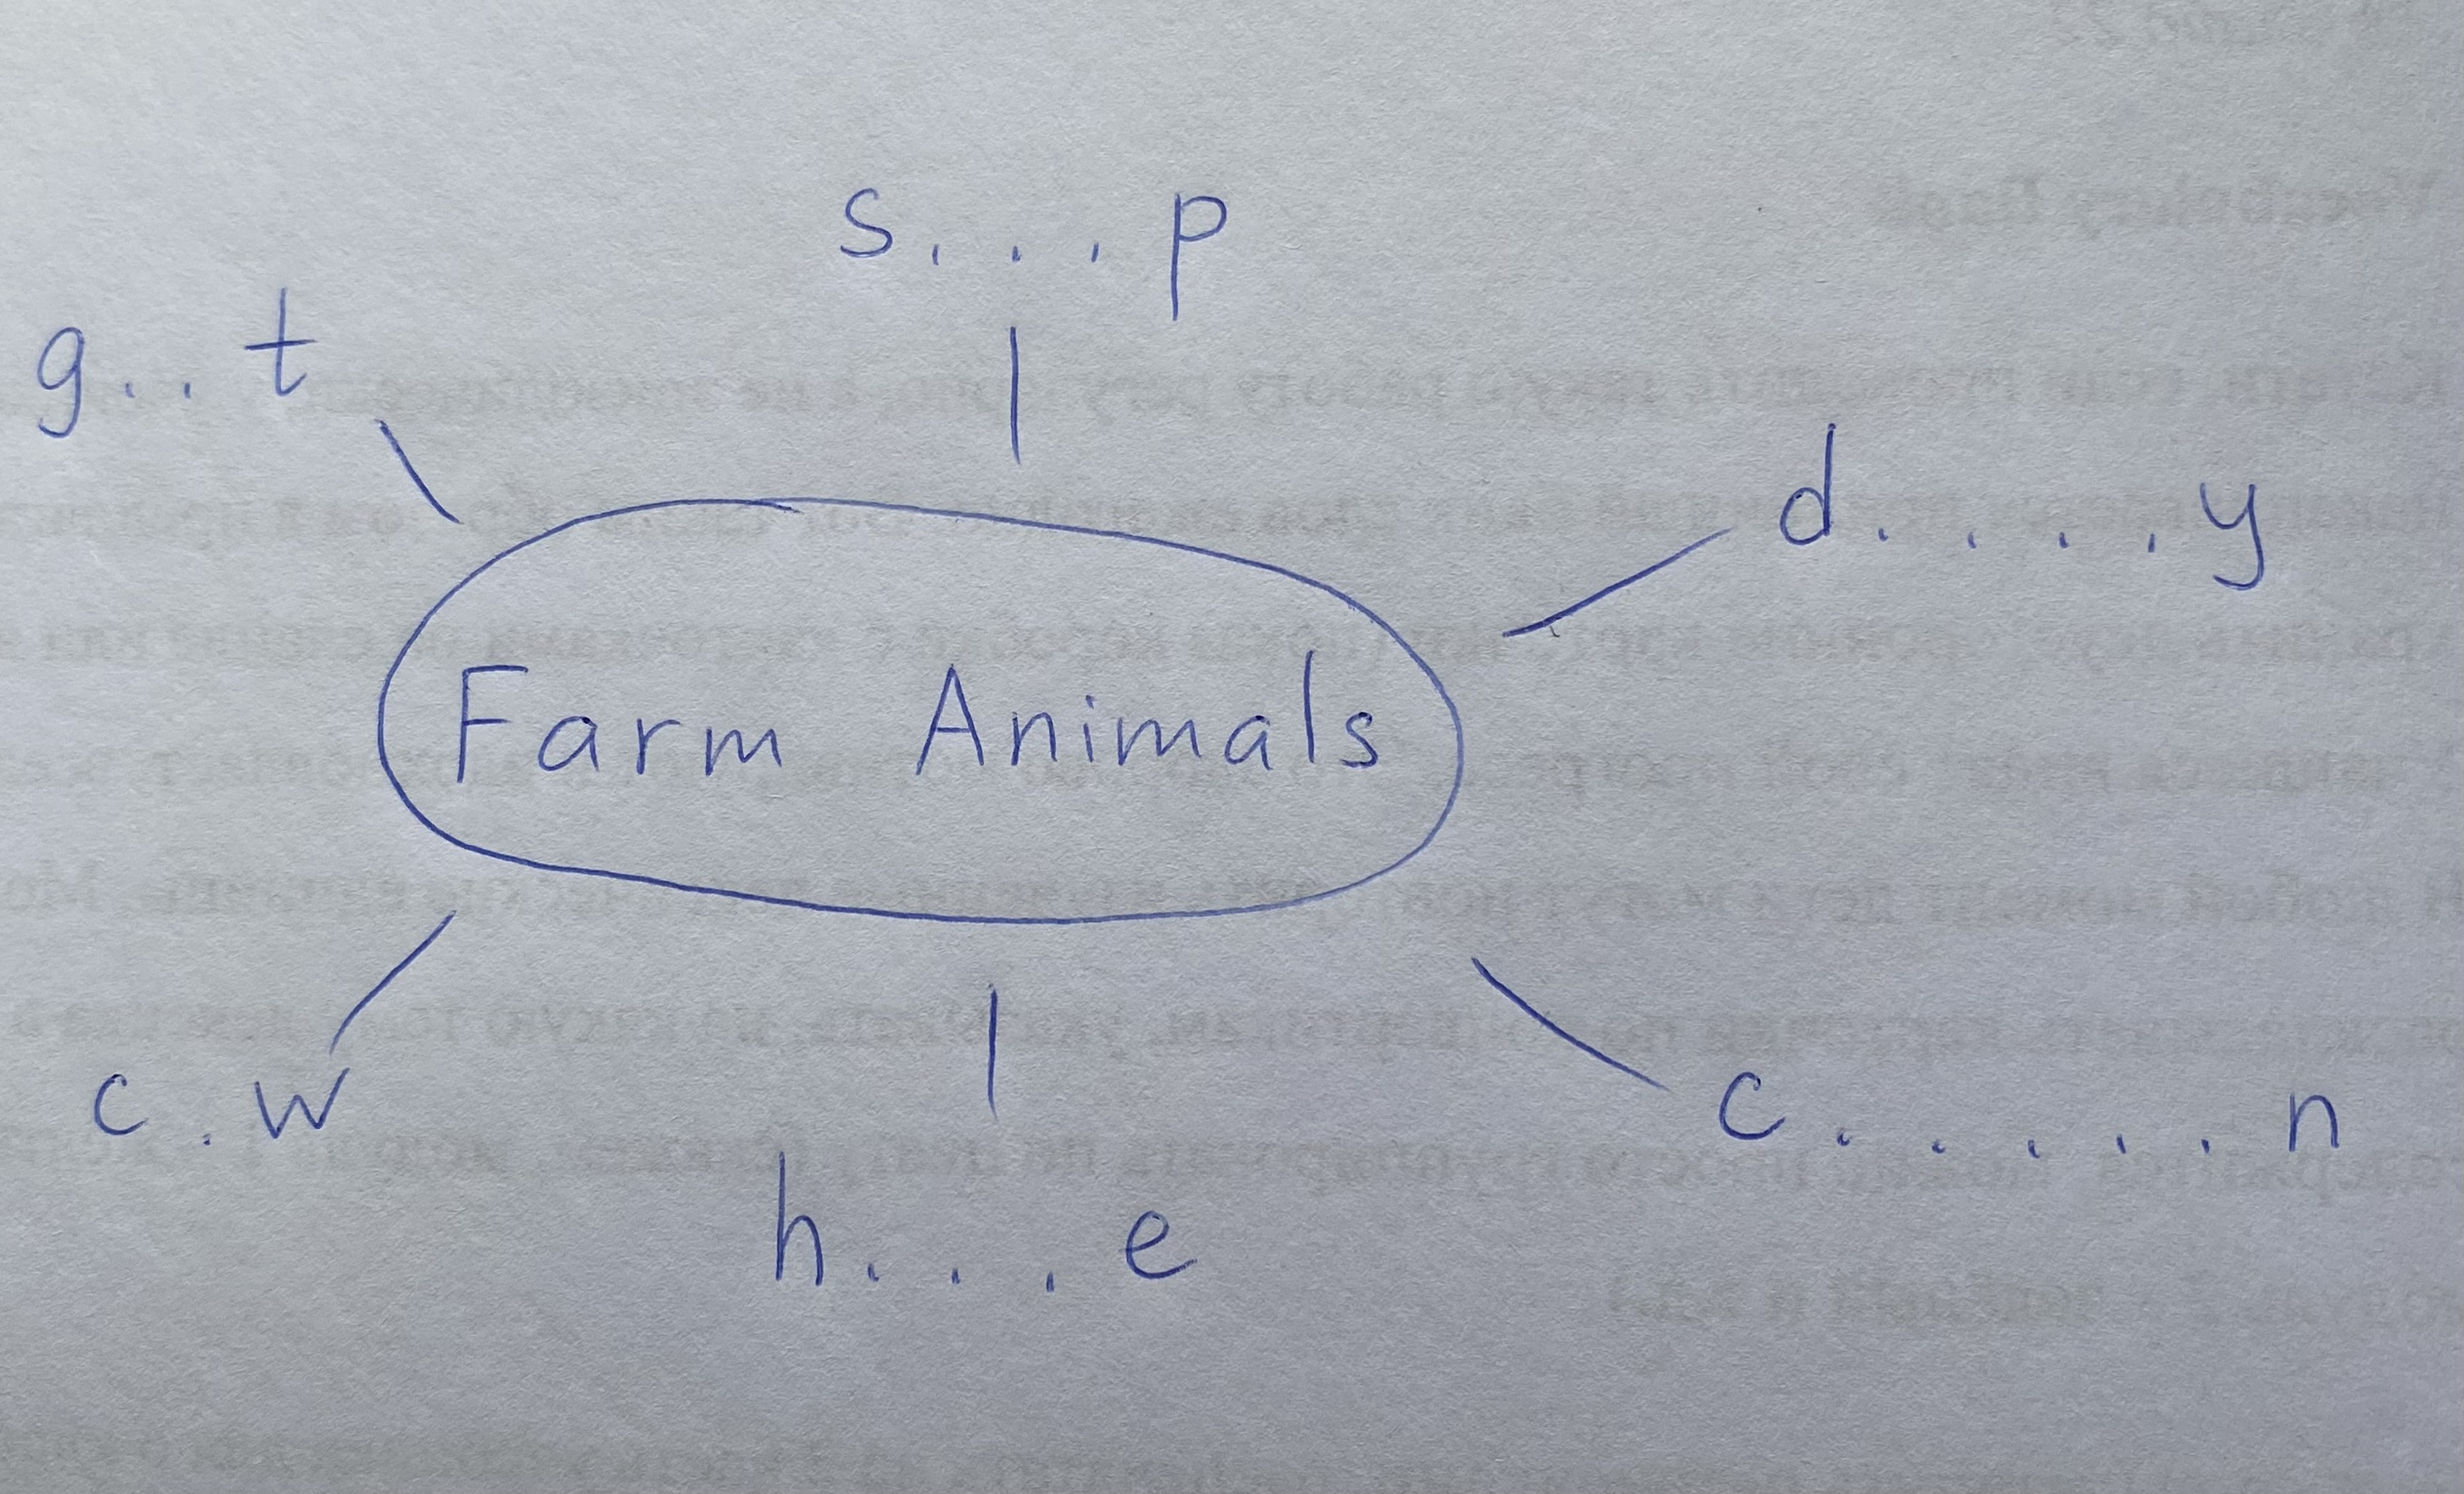 s...p
g..t
d....y
Farm Animals
c.w
c.....n
h...e